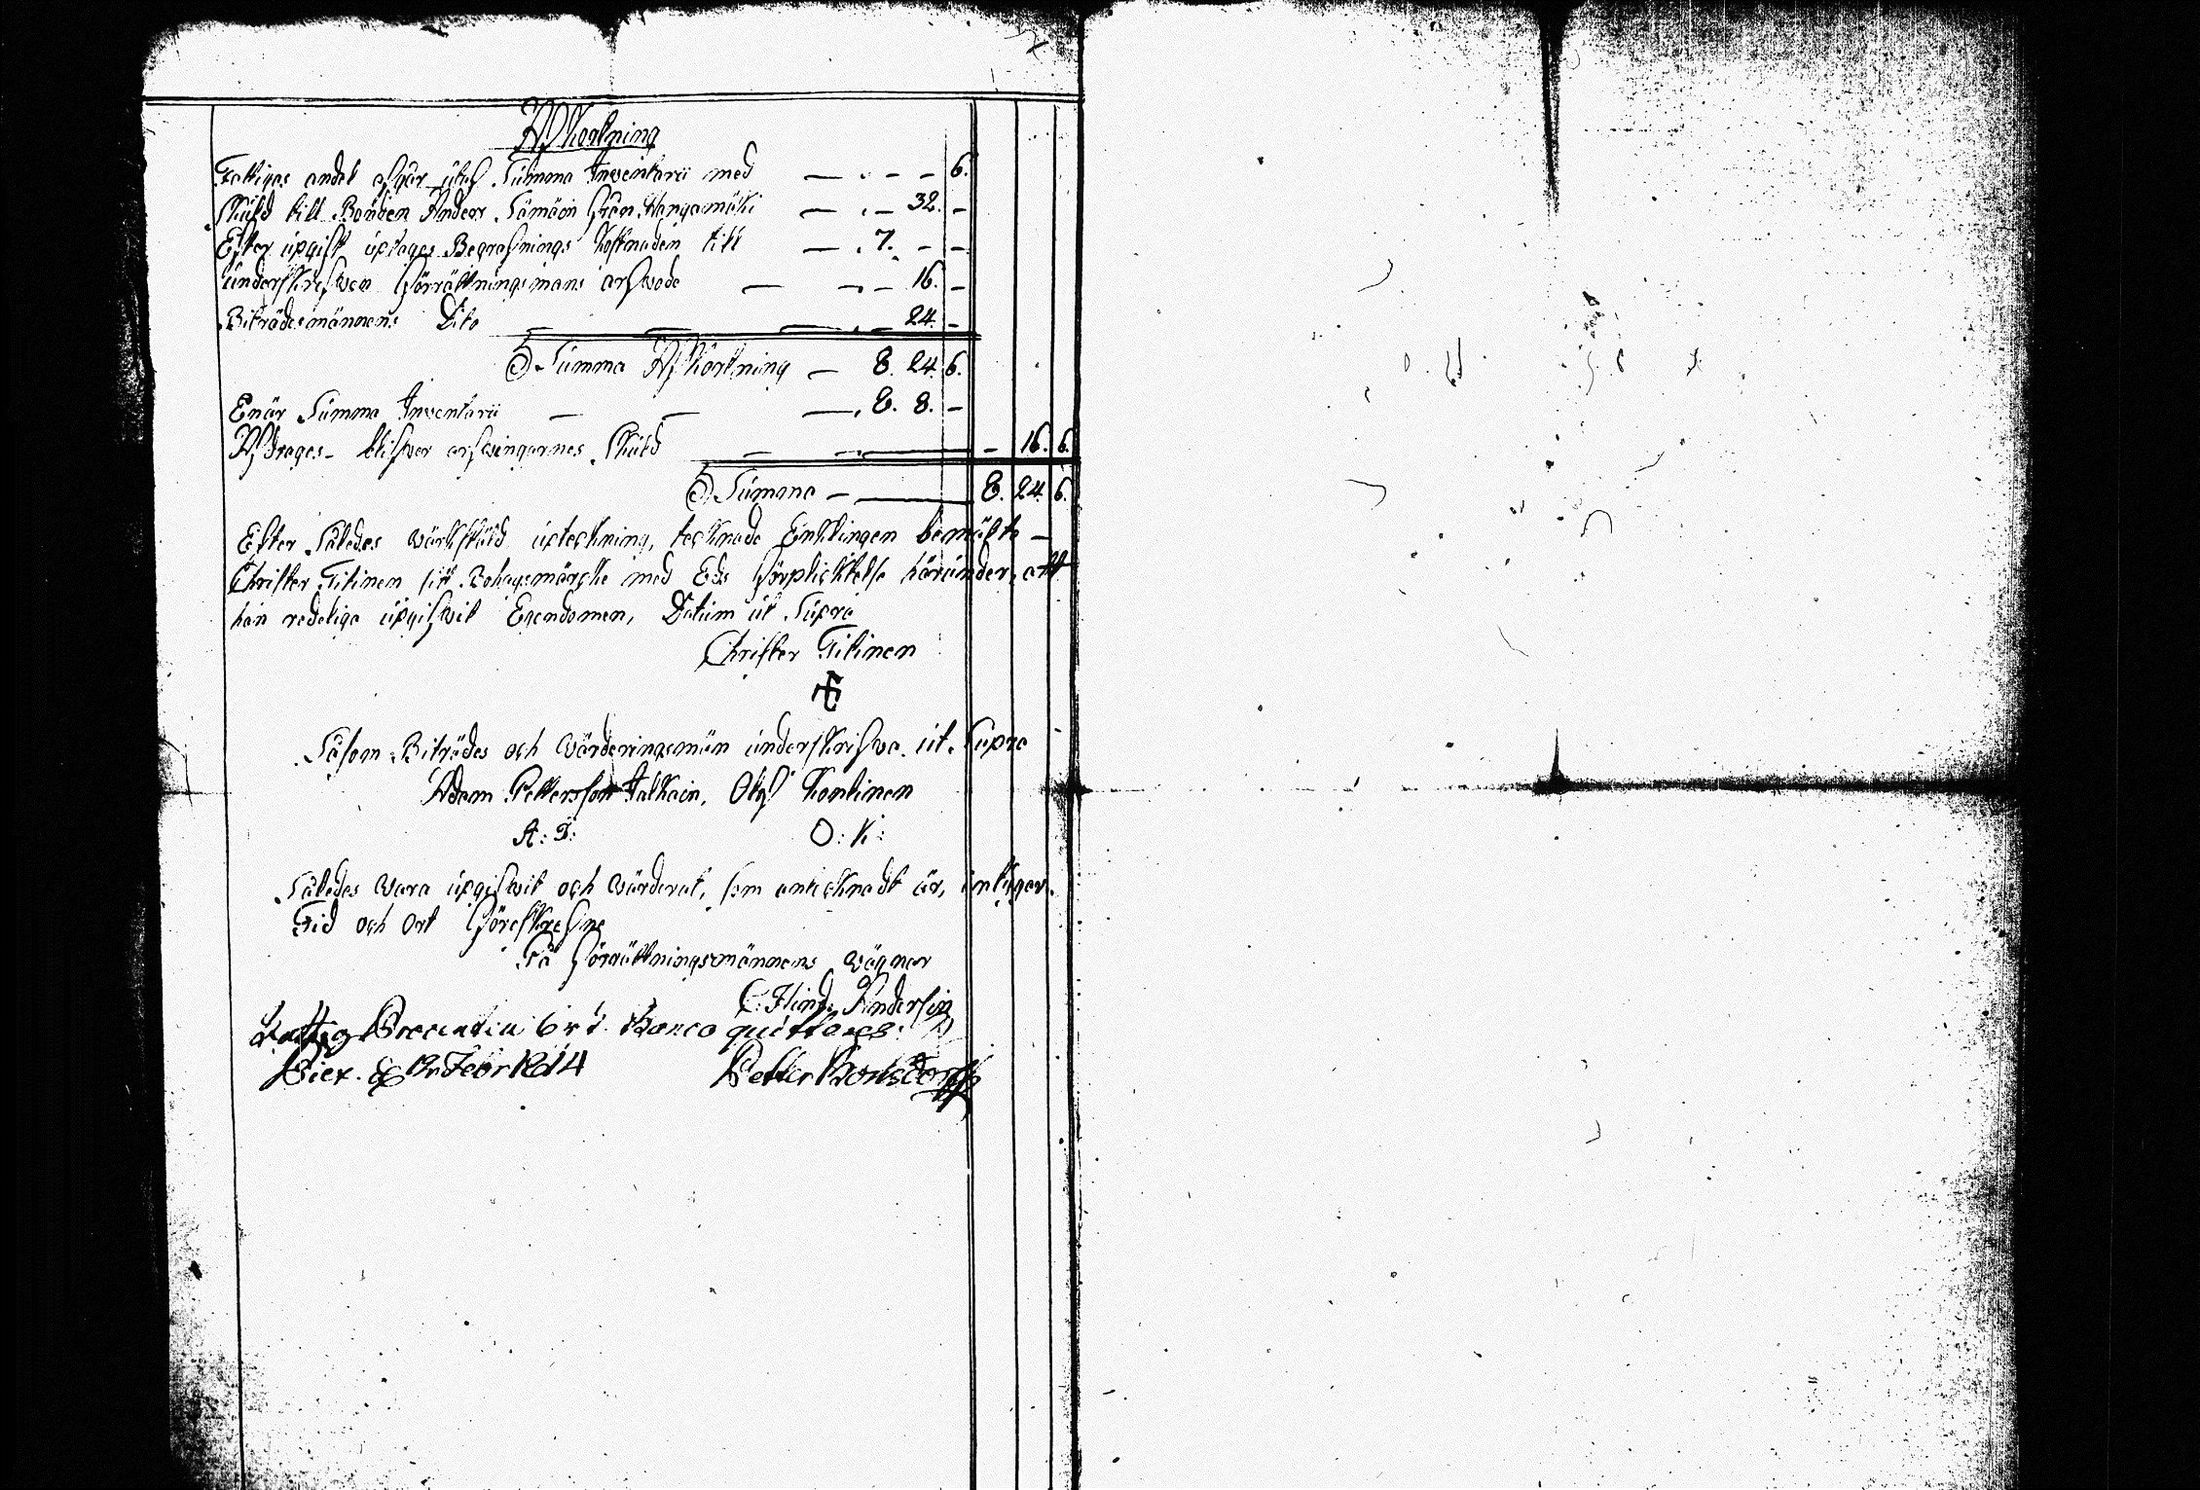 Afkortning
Fattiges andel afgår utaf Summa Inventarii med — . - - 6.
Skuld till Bonden Anders Sämäin från Kangamäki — . - 32. -
Efter upgift uptages Begrafnings kostnaden till — . 7. - -
Underskrefwen förrättningsmans arfwode — - . - 16. -
Biträdesmännens Dito — — — . - 24. -
S Summa Afkortning — 8. 24. 6.
Enär Summa Inventarii — — — . 8. 8. -
Afdrages blifwer arfwingarnes Skuld — — - 16. 6.
S Summa — 8. 24. 6.
Efter Således wärkstäld upteckning, tecknade Enklingen bemälte —
Christer Titinen sit Bohagsmärcke med Eds förplicktelse härunder, att
han redeliga upgifwit Egendomen, Datum ut Supra
Christer Titinen
Såsom Biträdes och Wärderingsmän underskrifwa ut Supra
Adam Pettersson Jalkain, Olof Kontinen
A: P: O: K:
Således wara upgifwit och wärderat, som antecknadt är, intygar.
Tid och Ort förestrefne
På förrättningsmännens wägnar
C. Flind Andersin
Fattig Procenten 6 r s. Banco quitteras.
Piex. d. Febr 1814 Petter